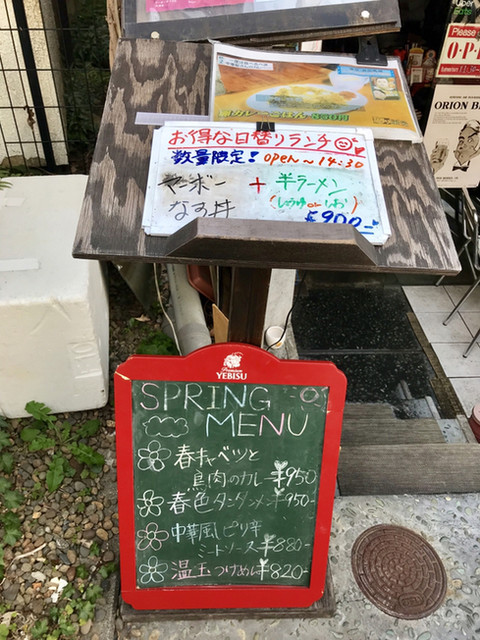 Uber
Please
O·P·E
ORION B
お得な日替りランチ
数量限定！ open～14:30
マーボー + 半ラーメン
なす丼 (しょうゆorしお)
¥900-
Premium
YEBISU
SPRING
MENU
春キャベツと
鳥肉のカレー ¥950
春色タンタンメン ¥950-
中華風ピリ辛
ミートソース ¥880-
温玉つけめん ¥820-